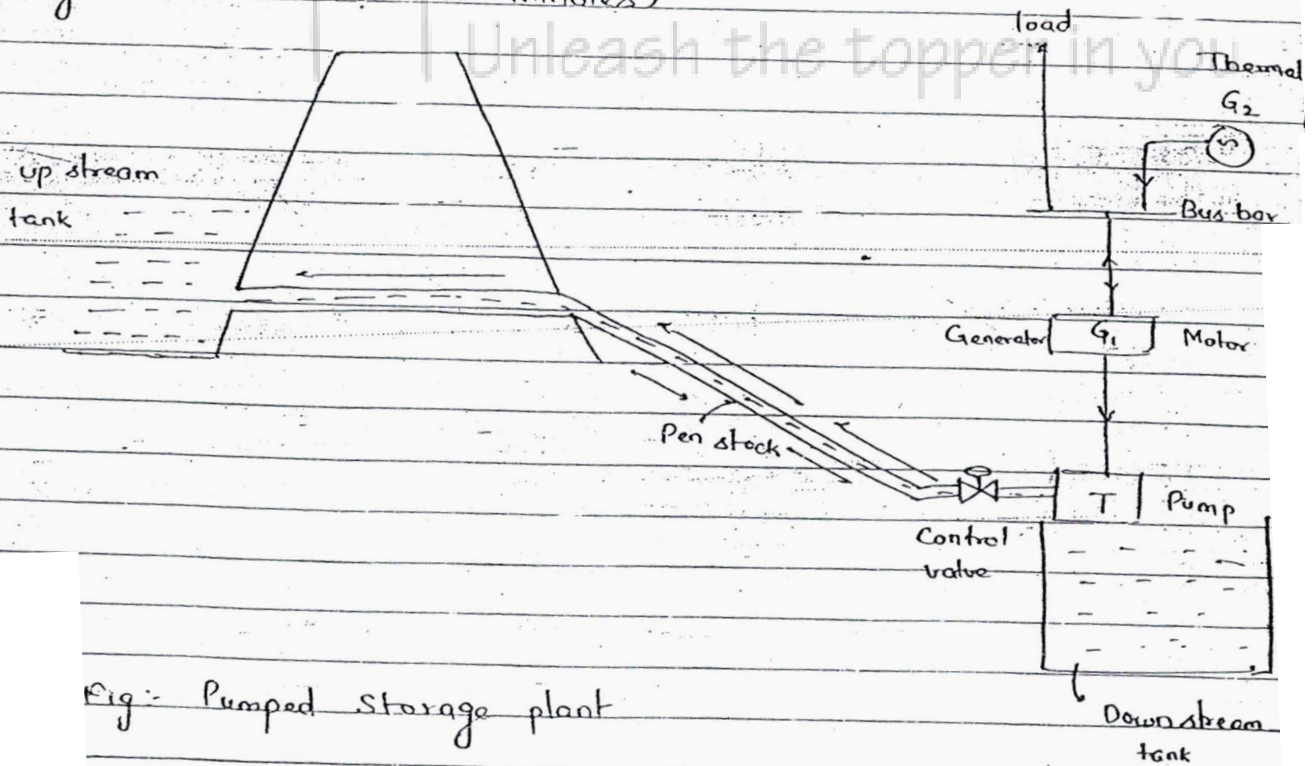 load
Unleash the topper in you
Thermal
G2
up stream
tank
Bus bar
Generator
G1
Motor
Pen stock
T
Pump
Control
valve
Fig:- Pumped Storage plant
Downstream
tank